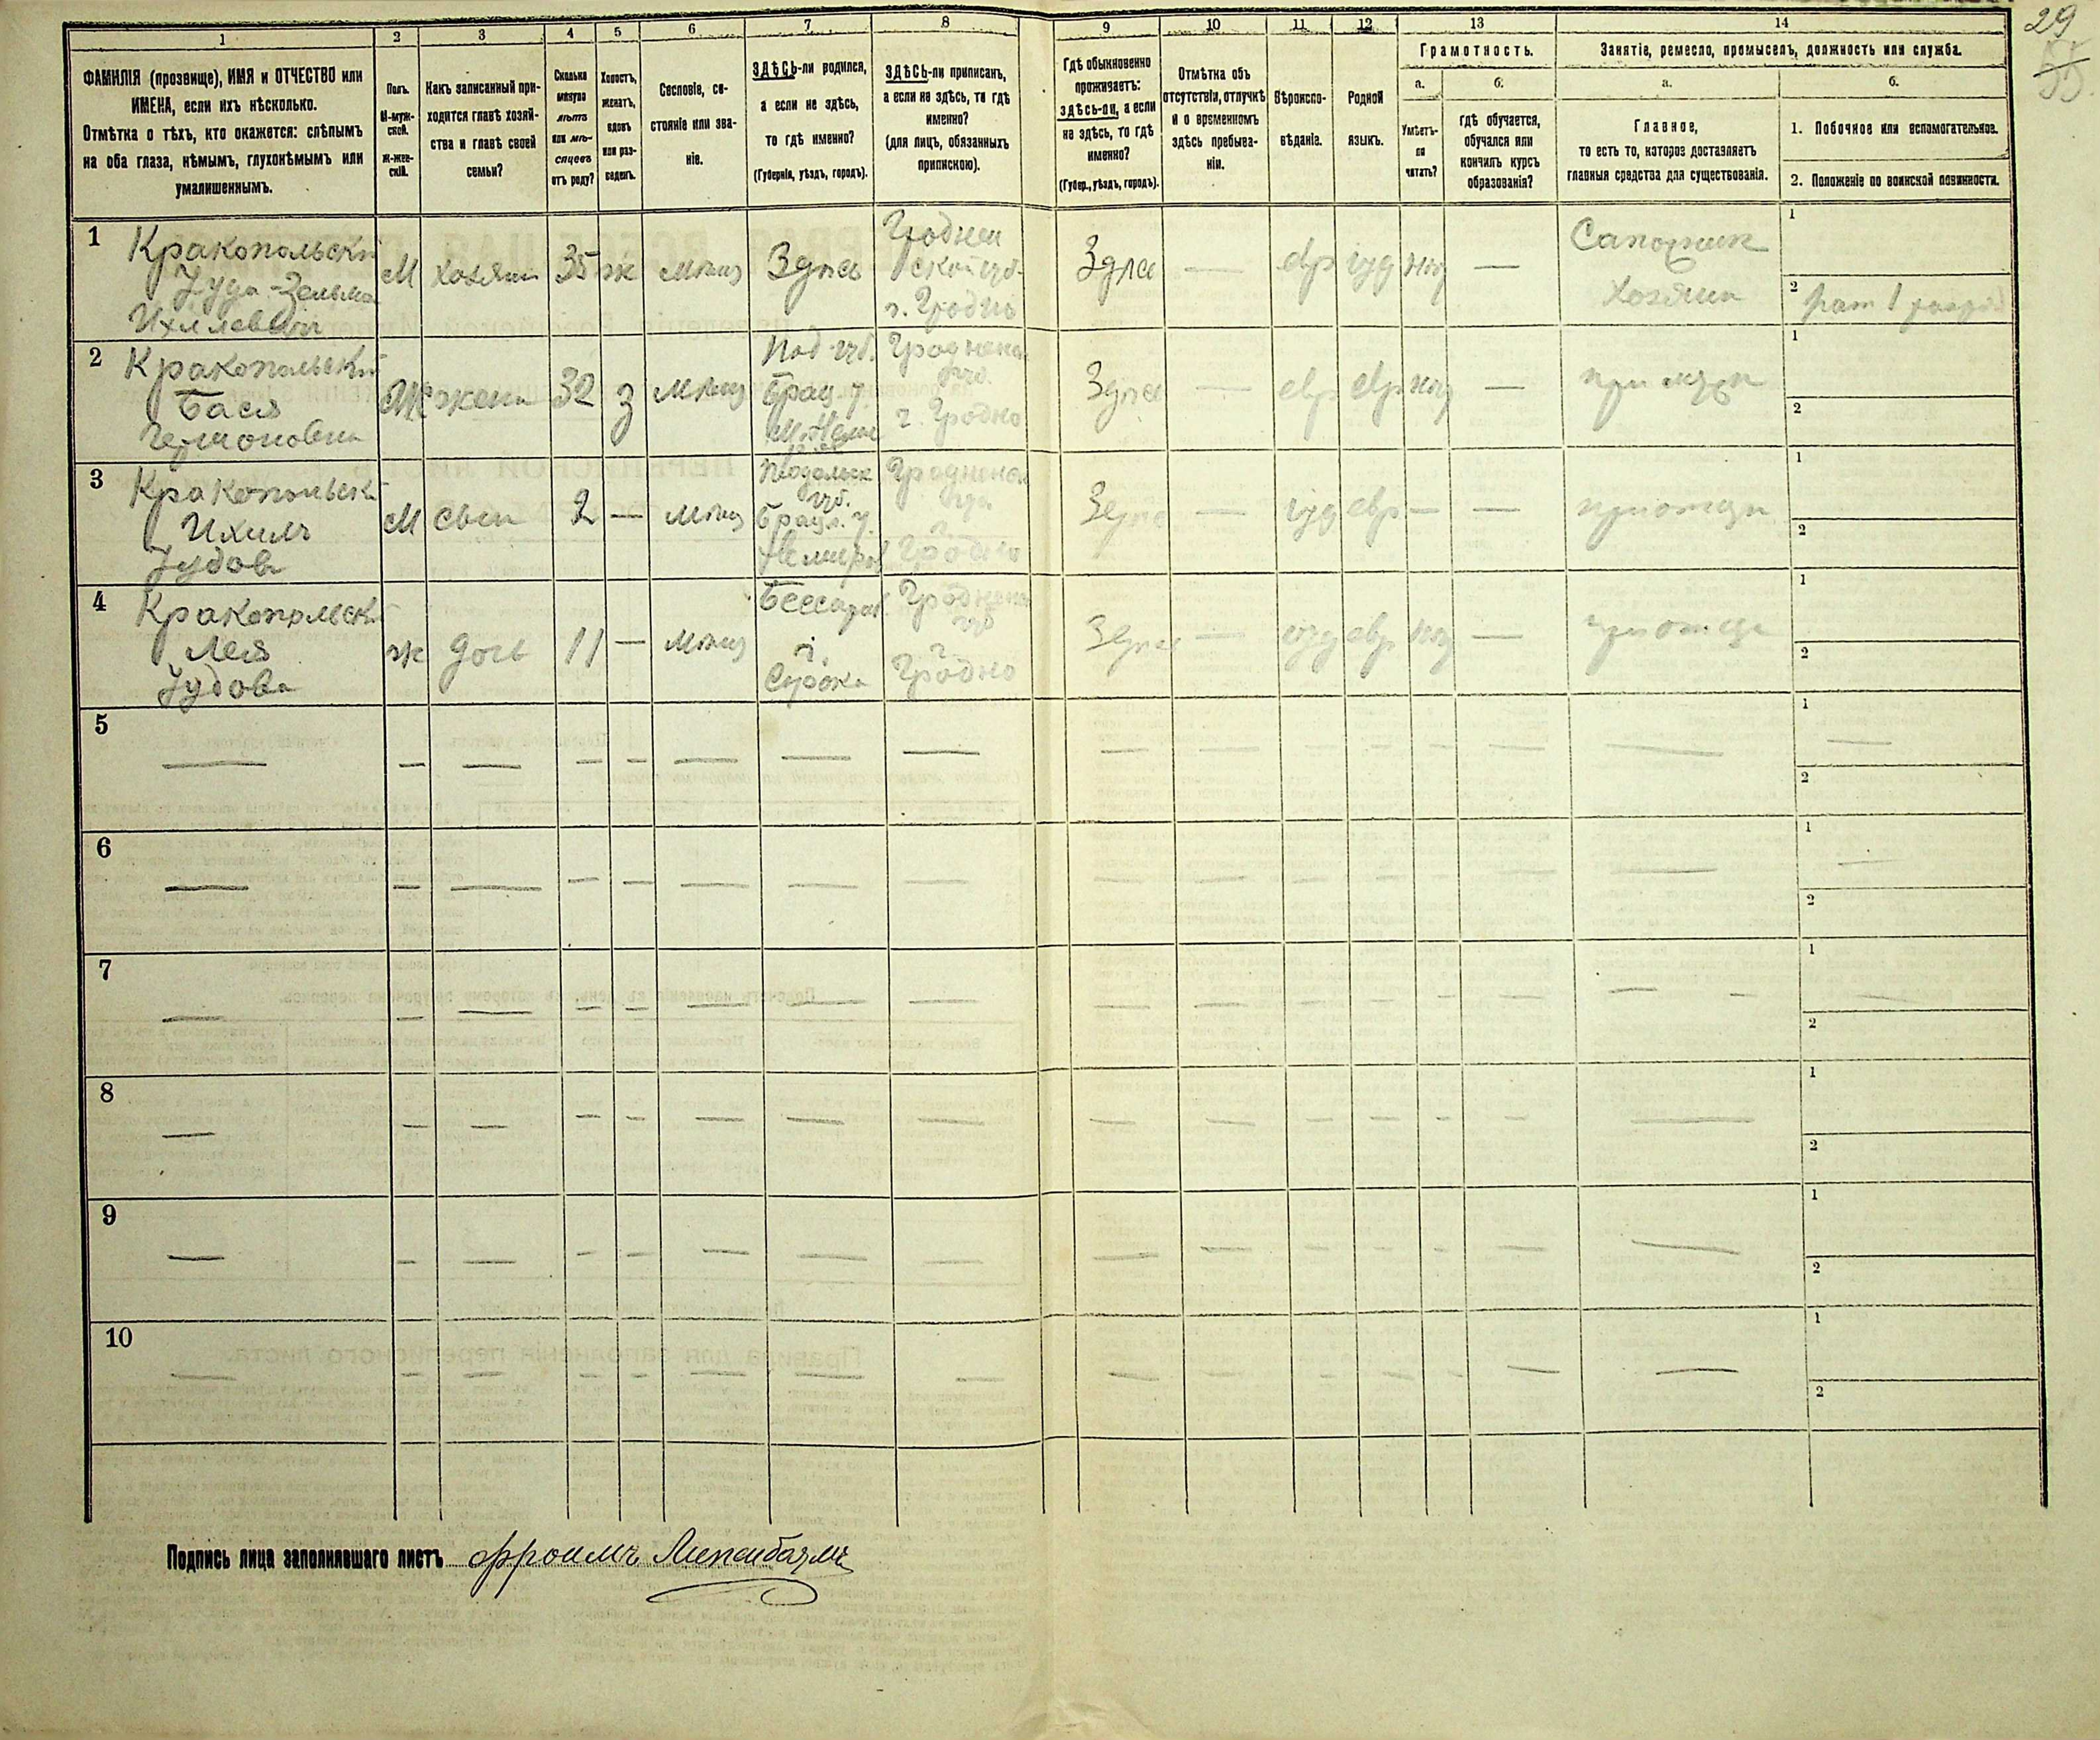 29
55
1
2
3
4
5
6
7
8
9
10
11
12
13
14
ФАМИЛІЯ (прозвище), ИМЯ и ОТЧЕСТВО или
ИМЕНА, если ихъ нѣсколько.
Отмѣтка о тѣхъ, кто окажется: слѣпымъ
на оба глаза, нѣмымъ, глухонѣмымъ или
умалишеннымъ.
Полъ.
М-муж-
ской.
Ж-жен-
скій.
Какъ записанный при-
ходится главѣ хозяй-
ства и главѣ своей
семьи?
Сколько
минуло
лѣтъ
или мѣ-
сяцевъ
отъ роду?
Холостъ,
женатъ,
вдовъ
или раз-
веденъ.
Сословіе, со-
стояніе или зва-
ніе.
ЗДѢСЬ-ли родился,
а если не здѣсь,
то гдѣ именно?
(Губернія, уѣздъ, городъ).
ЗДѢСЬ-ли приписанъ,
а если не здѣсь, то гдѣ
именно?
(для лицъ, обязанныхъ
припискою).
Гдѣ обыкновенно
проживаетъ:
здѣсь-ли, а если
не здѣсь, то гдѣ
именно?
(Губер., уѣздъ, городъ).
Отмѣтка объ
отсутствіи, отлучкѣ
и о временномъ
здѣсь пребыва-
ніи.
Вѣроиспо-
вѣданіе.
Родной
языкъ.
Грамотность.
а.
Умѣетъ-
ли
читать?
б.
гдѣ обучается,
обучался или
кончилъ курсъ
образованія?
Занятіе, ремесло, промыселъ, должность или служба.
а.
Главное,
то есть то, которое доставляетъ
главныя средства для существованія.
б.
1. Побочное или вспомогательное.
2. Положеніе по воинской повинности.
1
Кракопольскій
Іуда-Зельма
Ихилевичъ
М
хозяин
35
ж
мѣщ
Здѣсь
Гроднен
ской губ.
г. Гродно
Здѣсь
—
евр
іуд
нѣт
—
Сапожник
хозяин
1
2
рат 1 разр
2
Кракопольскій
Бася
Гершоновна
Ж
жена
32
з
мѣщ
Под. губ.
Брац. у.
Гродненс.
губ.
г. Гродно
Здѣсь
—
евр
евр
нѣт
—
при мужѣ
1
2
3
Кракопольскі
Ихиль
Іудов
М
сын
2
—
мѣщ
Подольск
губ.
Брацл. у.
Немиров
Гродненс
губ.
г.
Гродно
Здѣсь
—
іуд
евр
—
—
при отцѣ
1
2
4
Кракопольск
Лея
Іудова
ж
дочь
11
—
мѣщ
Бессараб
г.
Сорока
Гродненс
губ
г.
Гродно
Здѣсь
—
іуд
евр
нѣт
—
при отцѣ
1
2
5
1
2
6
1
2
7
1
2
8
1
2
9
1
2
10
1
2
Подпись лица заполнявшаго листъ Фроимъ Липенбаумъ